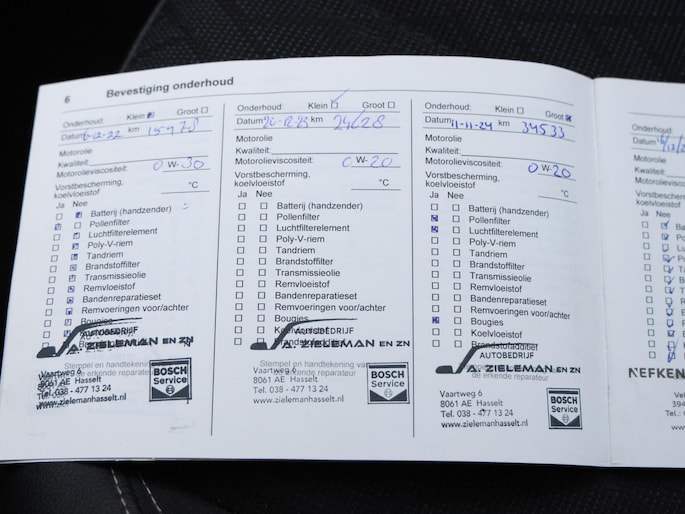 6 Bevestiging onderhoud
Onderhoud: Klein Groot
Datum 6-12-22 km
Motorolie
Kwaliteit:
Motorolieviscositeit: 0 W- 30
Vorstbescherming, °C
koelvloeistof
Ja Nee
Batterij (handzender)
Pollenfilter
Luchtfilterelement
Poly-V-riem
Tandriem
Brandstoffilter
Transmissieolie
Remvloeistof
Bandenreparatieset
Remvoeringen voor/achter
Bougies
AUTOBEDRIJF
A. ZIELEMAN EN ZN
Stempel en handtekening van
de erkende reparateur
Vaartweg 6
8061 AE Hasselt
Tel. 038 - 477 13 24
www.zielemanhasselt.nl
BOSCH
Service
Onderhoud: Klein Groot
Datum 20-12-23 km 24628
Motorolie
Kwaliteit:
Motorolieviscositeit: 0 W- 20
Vorstbescherming, °C
koelvloeistof
Ja Nee
Batterij (handzender)
Pollenfilter
Luchtfilterelement
Poly-V-riem
Tandriem
Brandstoffilter
Transmissieolie
Remvloeistof
Bandenreparatieset
Remvoeringen voor/achter
Bougies
Koelvloeistof
AUTOBEDRIJF
A. ZIELEMAN EN ZN
Stempel en handtekening van
de erkende reparateur
Vaartweg 6
8061 AE Hasselt
Tel. 038 - 477 13 24
www.zielemanhasselt.nl
BOSCH
Service
Onderhoud: Klein Groot
Datum 11-11-24 km 34533
Motorolie
Kwaliteit:
Motorolieviscositeit: 0 W- 20
Vorstbescherming, °C
koelvloeistof
Ja Nee
Batterij (handzender)
Pollenfilter
Luchtfilterelement
Poly-V-riem
Tandriem
Brandstoffilter
Transmissieolie
Remvloeistof
Bandenreparatieset
Remvoeringen voor/achter
Bougies
Koelvloeistof
Brandstofadditief
AUTOBEDRIJF
A. ZIELEMAN EN ZN
de erkende reparateur
Vaartweg 6
8061 AE Hasselt
Tel. 038 - 477 13 24
www.zielemanhasselt.nl
BOSCH
Service
Onderhoud:
Datum
Motorolie
Kwaliteit:
Motorolievis
Vorstbesche
koelvloeistof
Ja Nee
NEFKEN